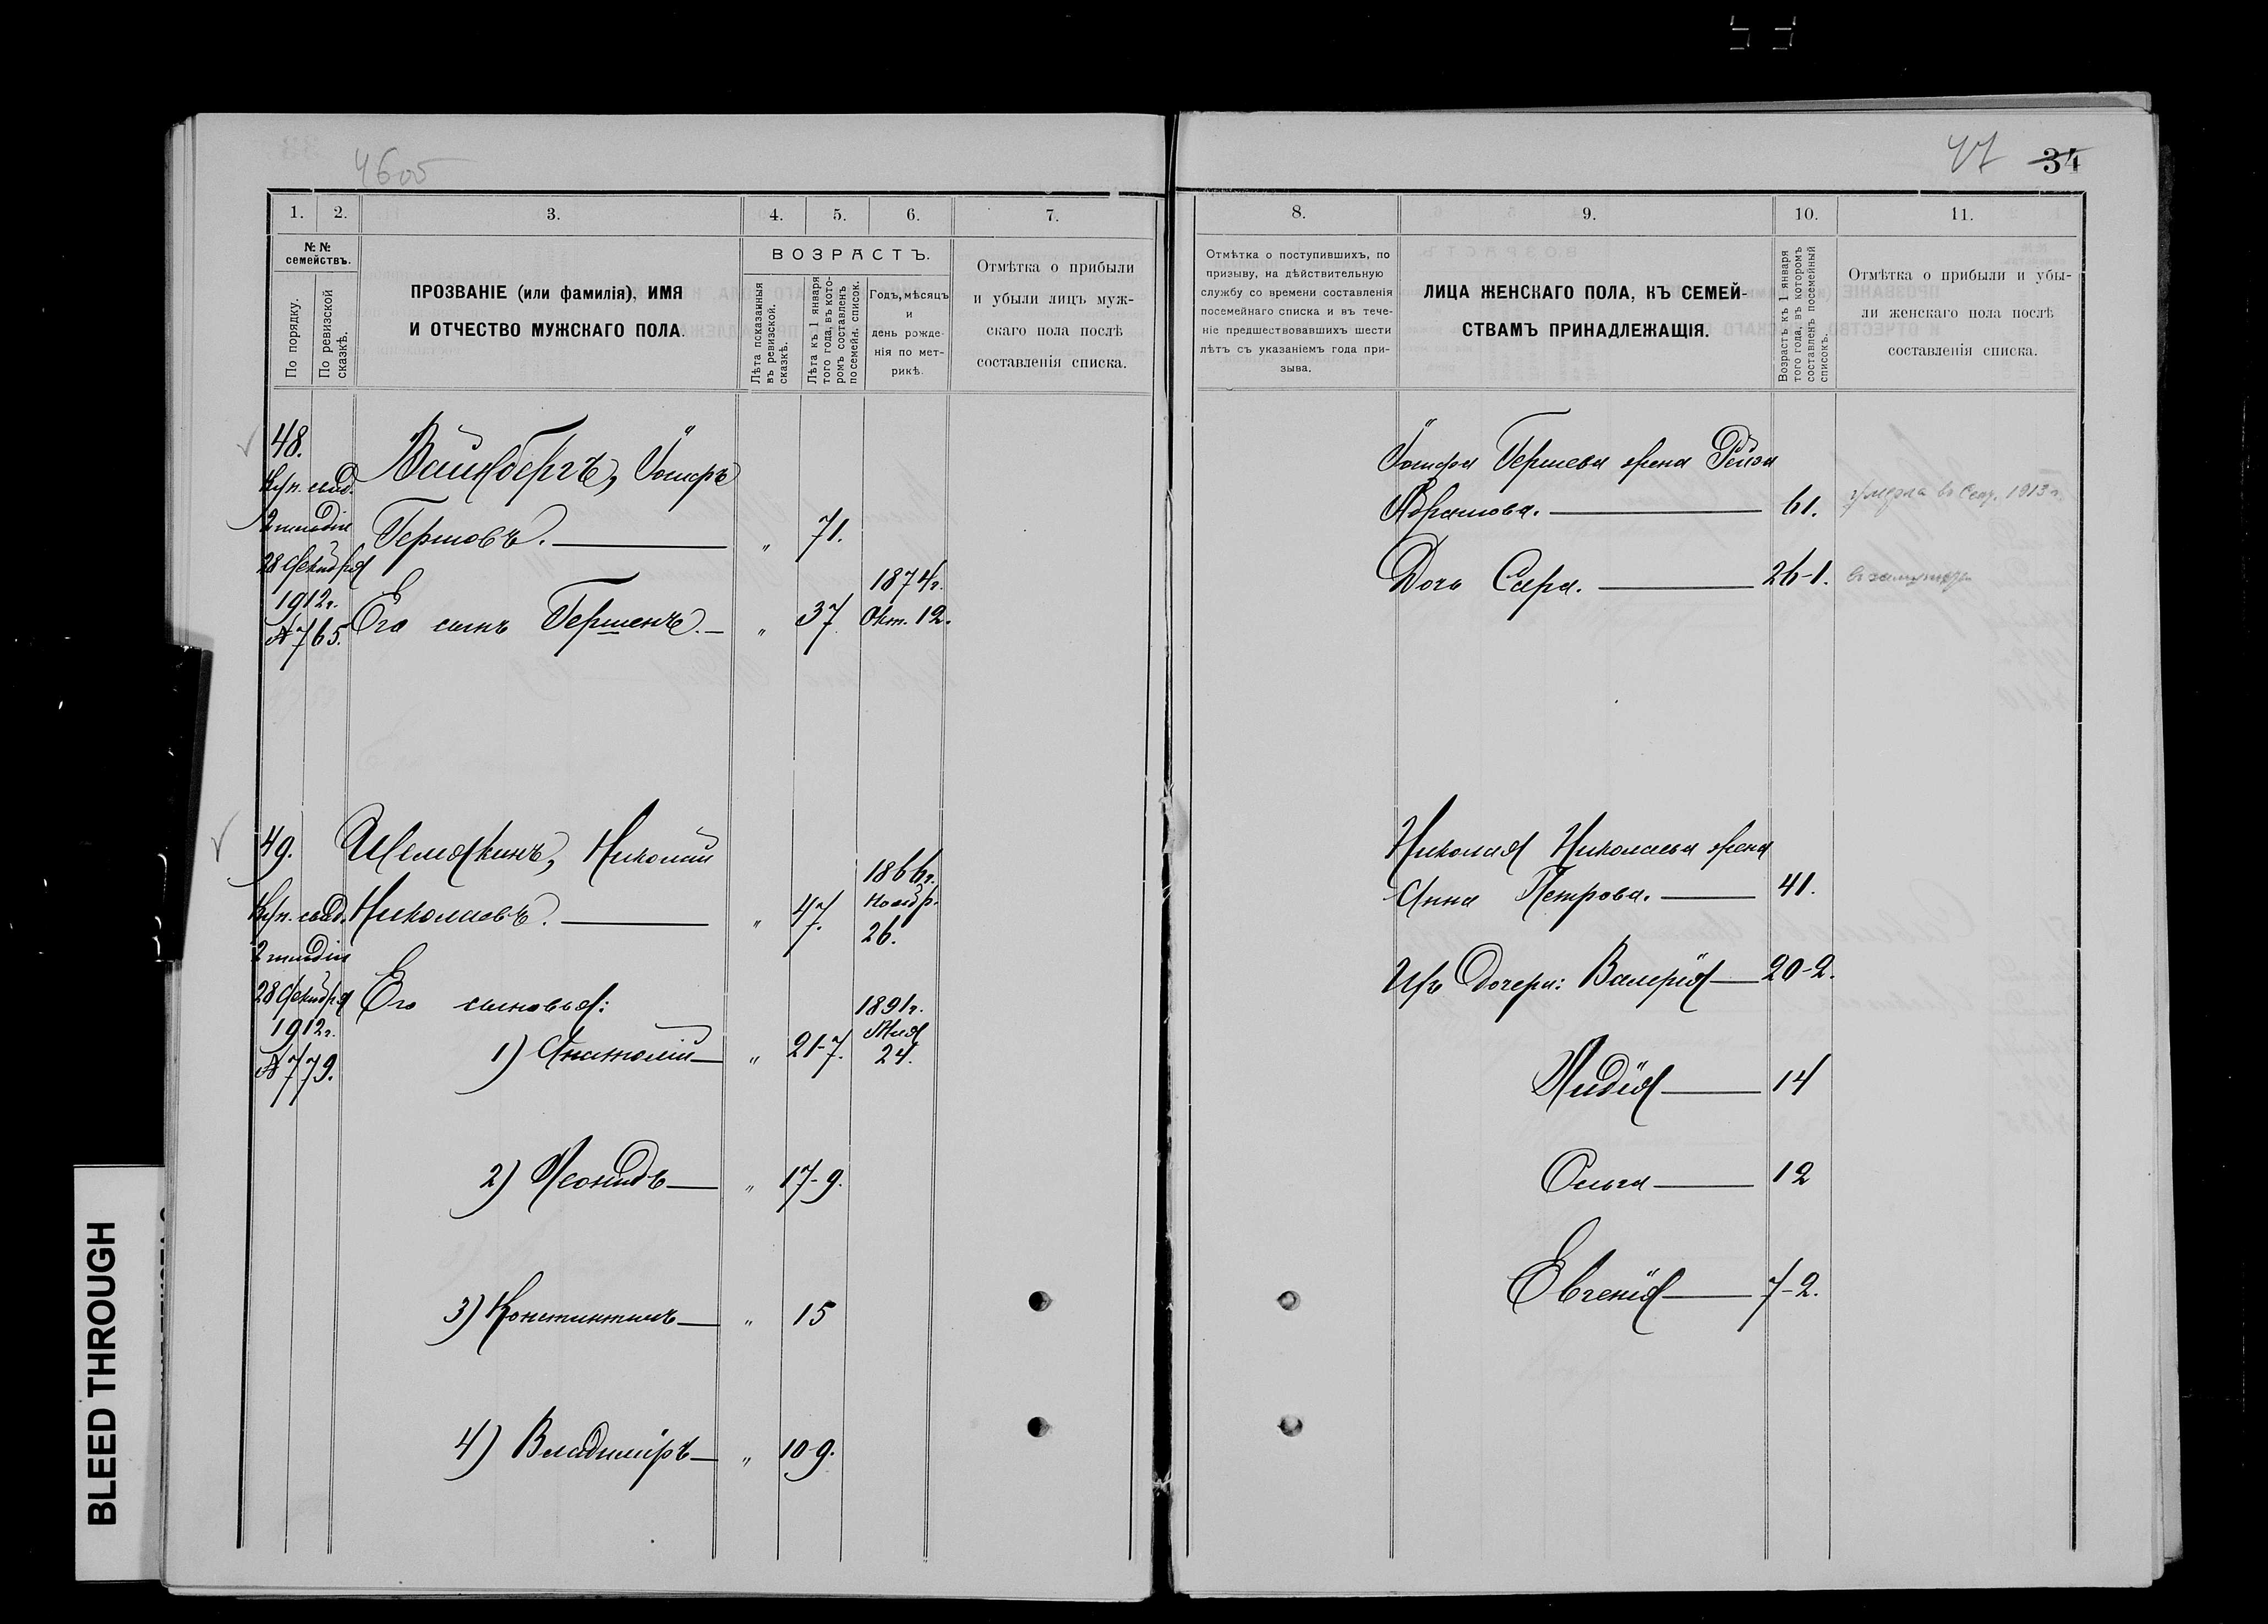 4600
1. 2. 3. 4. 5. 6. 7.
№ №
семействъ.
По порядку.
По ревизской
сказкѣ.
ПРОЗВАНІЕ (или фамилія), ИМЯ
И ОТЧЕСТВО МУЖСКАГО ПОЛА.
ВОЗРАСТЪ.
Лѣта показанныя
въ ревизской.
сказкѣ.
Лѣта къ 1 января
того года, въ кото-
ромъ составленъ
посемейн. список.
Годъ, мѣсяцъ
и
день рожде-
нія по мет-
рикѣ.
Отмѣтка о прибыли
и убыли лицъ муж-
скаго пола послѣ
составленія списка.
48.
Куп. свид.
2 гильдіи
28 Декабря
1912 г.
№ 765.
Вайнбергъ,
Гершовъ. " 71.
Его сынъ Гершенъ. " 37 1874 г.
Окт. 12.
49.
Куп. свид.
2 гильдіи
28 Декабря
1912 г.
№ 779.
Шемякинъ, Николай
Николаевъ. " 47. 1866 г.
Ноябр.
26.
Его сыновья:
1) Анатолій " 21-7. 1891 г.
Мая
24.
2) Леонидъ " 17-9.
3) Константинъ " 15
4) Владиміръ " 10-9.
47 34
8. 9. 10. 11.
Отмѣтка о поступившихъ, по
призыву, на дѣйствительную
службу со времени составленія
посемейнаго списка и въ тече-
ніе предшествовавшихъ шести
лѣтъ съ указаніемъ года при-
зыва.
ЛИЦА ЖЕНСКАГО ПОЛА, КЪ СЕМЕЙ-
СТВАМЪ ПРИНАДЛЕЖАЩІЯ.
Возрастъ къ 1 января
того года, въ которомъ
составленъ посемейный
списокъ.
Отмѣтка о прибыли и убы-
ли женскаго пола послѣ
составленія списка.
Гершева жена Рейза
Абрамова. 61. умерла въ Сент. 1913 г.
Дочь Сара. 26-1. въ замужест.
Николая Николаева жена
Анна Петрова. 41.
Ихъ дочери: Валерія 20-2.
Лидія 14
Ольга 12
Евгенія 7-2.
BLEED THROUGH